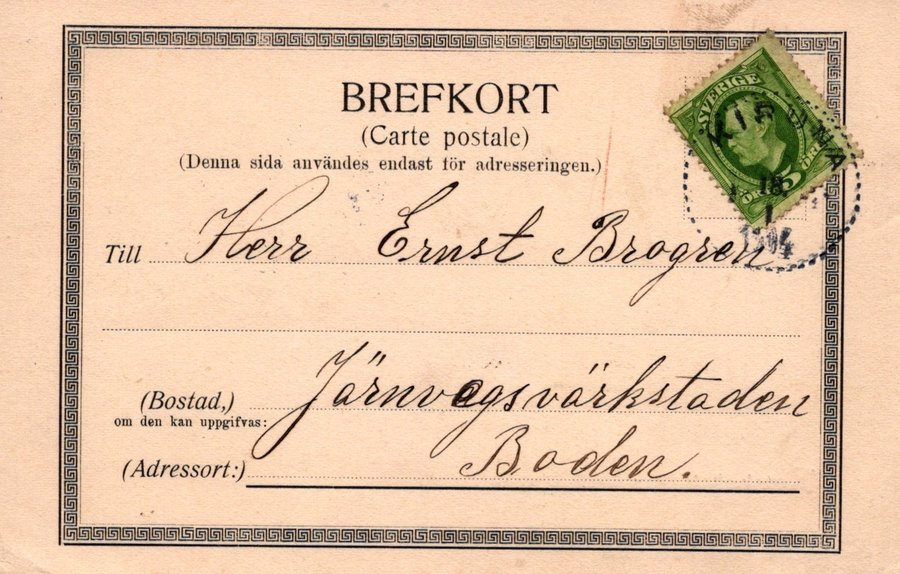 BREFKORT
(Carte postale)
(Denna sida användes endast för adresseringen.)
SVERIGE
KIRUNA
18
1
1904
Till Herr Ernst Brogren
Järnvägsvärkstaden
(Bostad,)
om den kan uppgifvas:
(Adressort:) Boden.